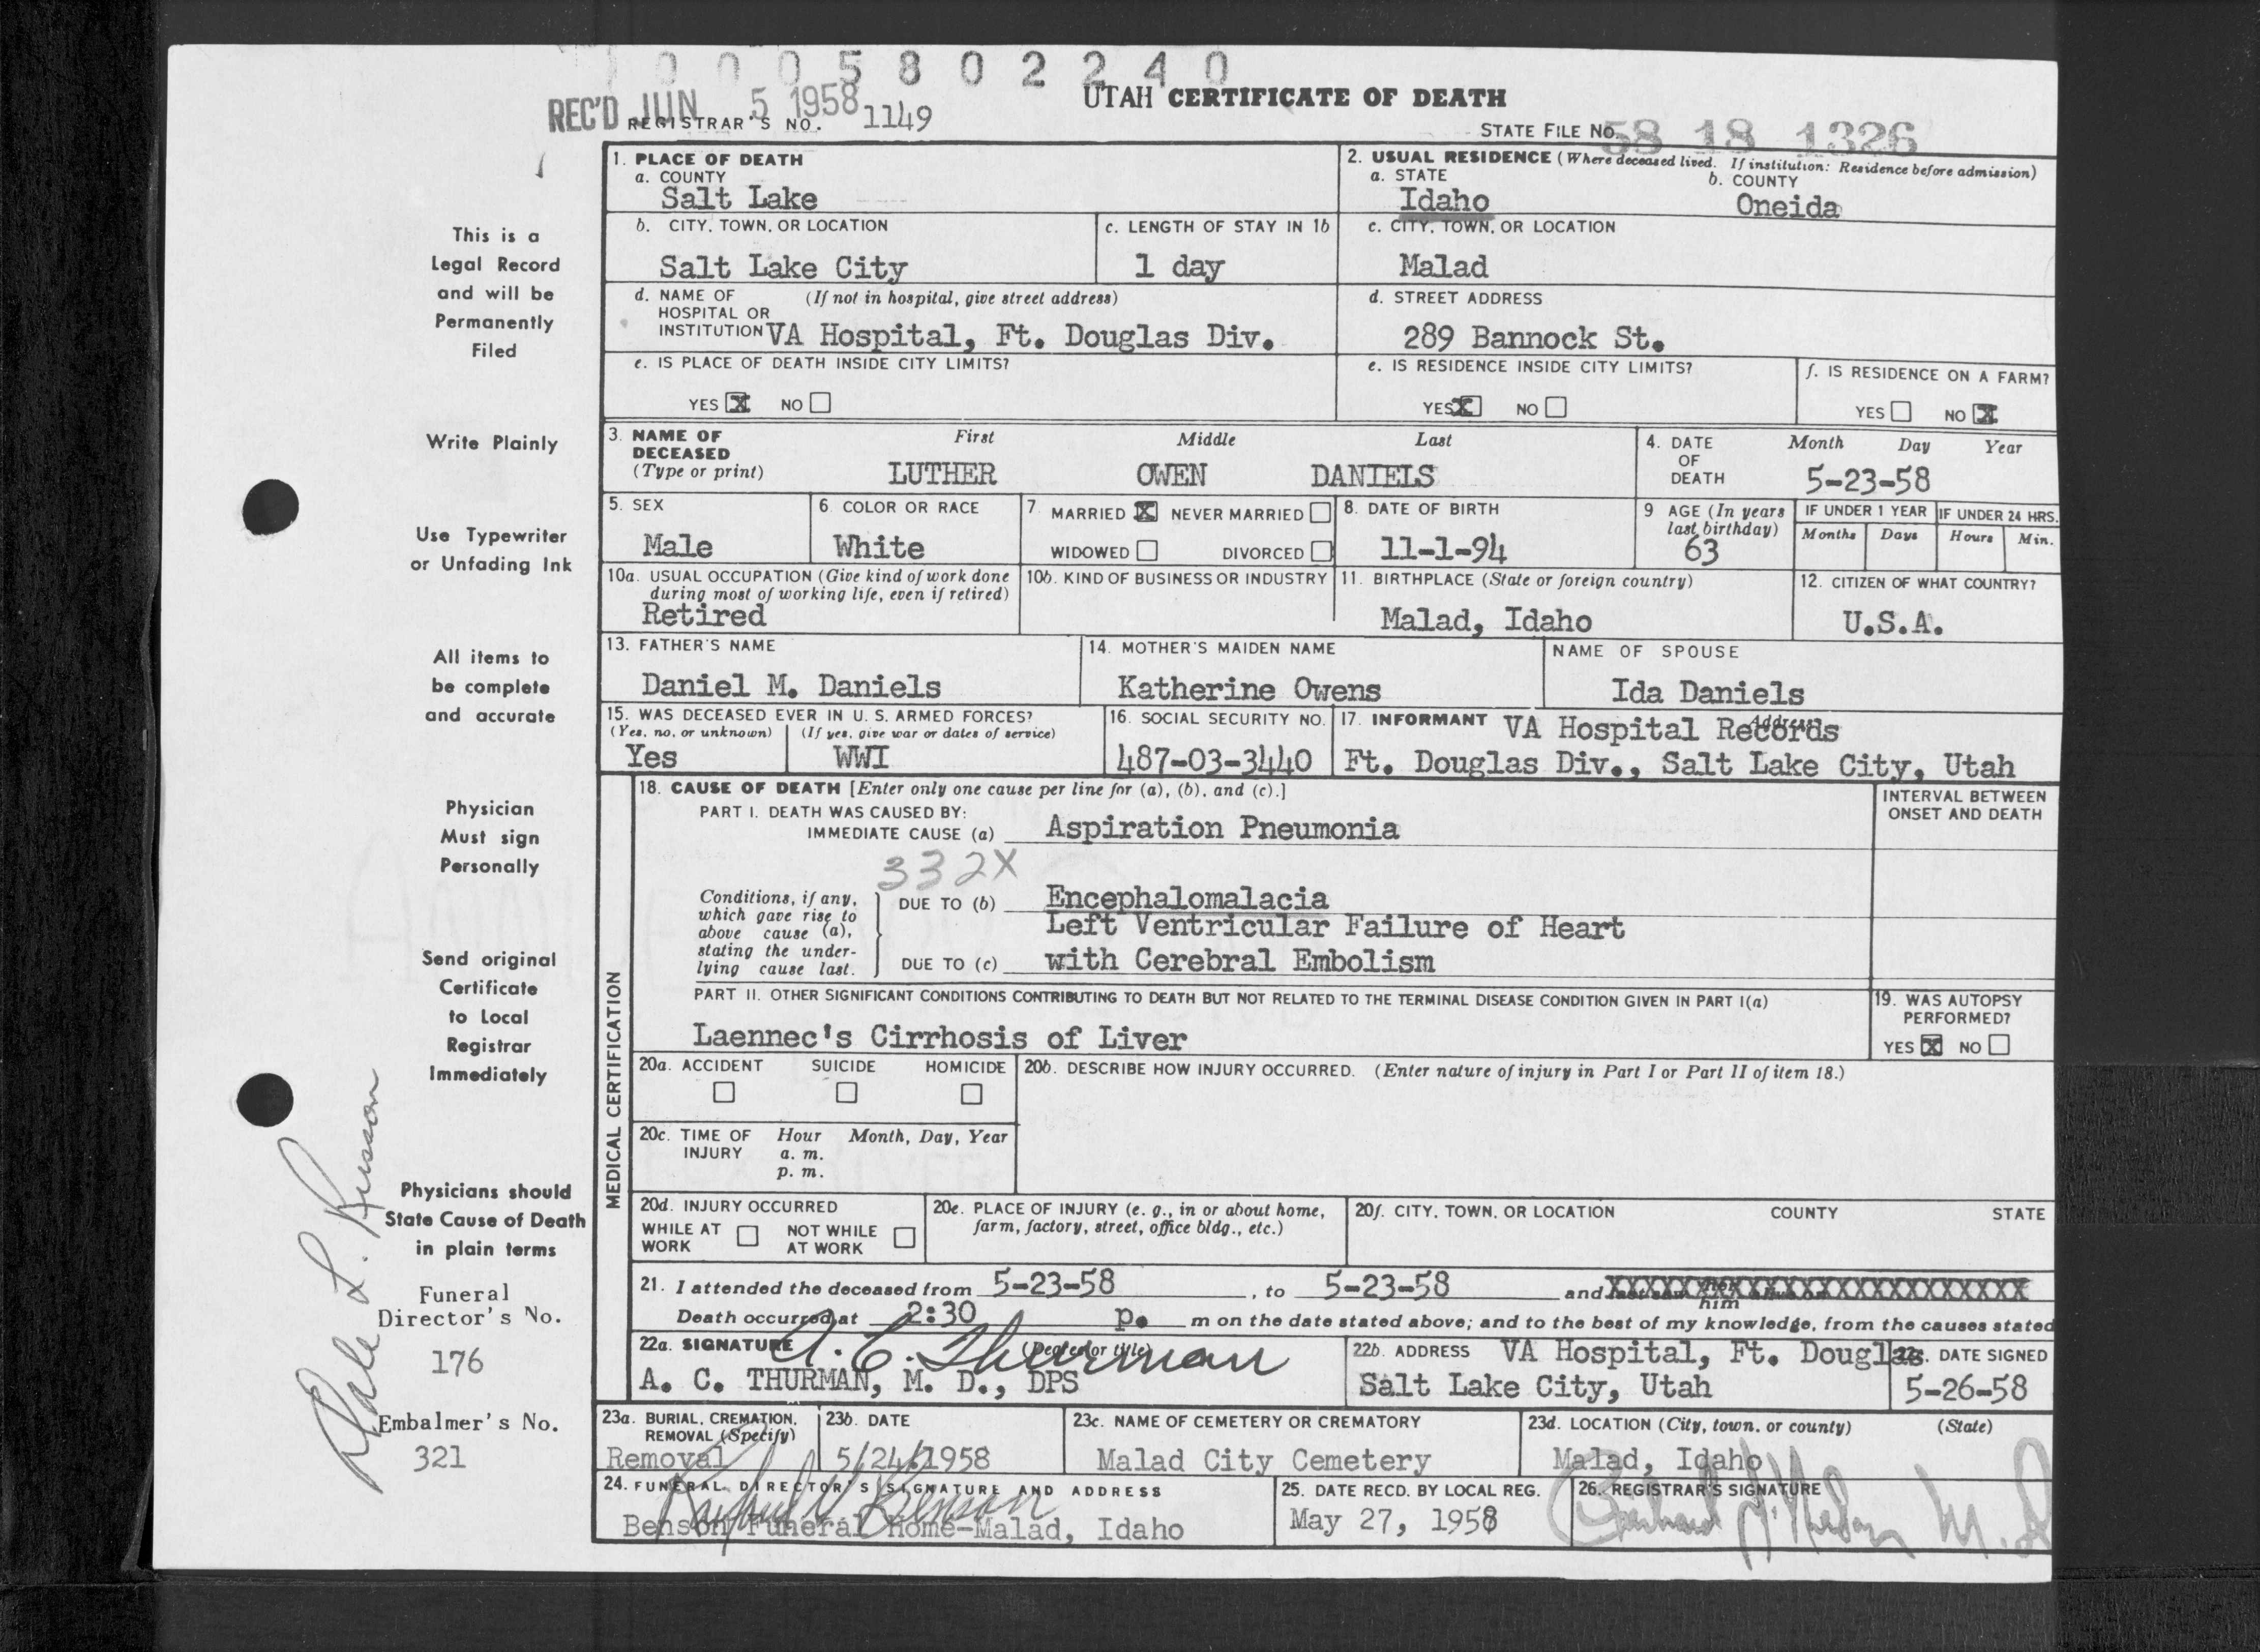 0 0 0 5 8 0 2 2 4 0
REC'D JUN 5 1958
REGISTRAR'S NO. 1149
UTAH CERTIFICATE OF DEATH
STATE FILE NO. 58 18 1326
This is a
Legal Record
and will be
Permanently
Filed
Write Plainly
Use Typewriter
or Unfading Ink
All items to
be complete
and accurate
Physician
Must sign
Personally
Send original
Certificate
to Local
Registrar
Immediately
Physicians should
State Cause of Death
in plain terms
Funeral
Director's No.
176
Embalmer's No.
321
1. PLACE OF DEATH
a. COUNTY
Salt Lake
2. USUAL RESIDENCE (Where deceased lived. If institution: Residence before admission)
a. STATE
Idaho
b. COUNTY
Oneida
b. CITY, TOWN, OR LOCATION
Salt Lake City
c. LENGTH OF STAY IN 1b
1 day
c. CITY, TOWN, OR LOCATION
Malad
d. NAME OF (If not in hospital, give street address)
HOSPITAL OR
INSTITUTION VA Hospital, Ft. Douglas Div.
d. STREET ADDRESS
289 Bannock St.
e. IS PLACE OF DEATH INSIDE CITY LIMITS?
YES X NO
e. IS RESIDENCE INSIDE CITY LIMITS?
YES X NO
f. IS RESIDENCE ON A FARM?
YES NO X
3. NAME OF DECEASED
(Type or print)
First Middle Last
LUTHER OWEN DANIELS
4. DATE OF DEATH
Month Day Year
5-23-58
5. SEX
Male
6. COLOR OR RACE
White
7. MARRIED X NEVER MARRIED
WIDOWED DIVORCED
8. DATE OF BIRTH
11-1-94
9 AGE (In years
last birthday)
63
IF UNDER 1 YEAR
Months Days
IF UNDER 24 HRS.
Hours Min.
10a. USUAL OCCUPATION (Give kind of work done
during most of working life, even if retired)
Retired
10b. KIND OF BUSINESS OR INDUSTRY
11. BIRTHPLACE (State or foreign country)
Malad, Idaho
12. CITIZEN OF WHAT COUNTRY?
U.S.A.
13. FATHER'S NAME
Daniel M. Daniels
14. MOTHER'S MAIDEN NAME
Katherine Owens
NAME OF SPOUSE
Ida Daniels
15. WAS DECEASED EVER IN U. S. ARMED FORCES?
(Yes, no, or unknown) (If yes, give war or dates of service)
Yes WWI
16. SOCIAL SECURITY NO.
487-03-3440
17. INFORMANT Address
VA Hospital Records
Ft. Douglas Div., Salt Lake City, Utah
MEDICAL CERTIFICATION
18. CAUSE OF DEATH [Enter only one cause per line for (a), (b), and (c).]
INTERVAL BETWEEN
ONSET AND DEATH
PART I. DEATH WAS CAUSED BY:
IMMEDIATE CAUSE (a) Aspiration Pneumonia
332X
Conditions, if any,
which gave rise to
above cause (a),
stating the under-
lying cause last.
DUE TO (b) Encephalomalacia
Left Ventricular Failure of Heart
DUE TO (c) with Cerebral Embolism
PART II. OTHER SIGNIFICANT CONDITIONS CONTRIBUTING TO DEATH BUT NOT RELATED TO THE TERMINAL DISEASE CONDITION GIVEN IN PART I(a)
Laennec's Cirrhosis of Liver
19. WAS AUTOPSY
PERFORMED?
YES X NO
20a. ACCIDENT SUICIDE HOMICIDE
20b. DESCRIBE HOW INJURY OCCURRED. (Enter nature of injury in Part I or Part II of item 18.)
20c. TIME OF INJURY
Hour Month, Day, Year
a. m.
p. m.
20d. INJURY OCCURRED
WHILE AT WORK NOT WHILE AT WORK
20e. PLACE OF INJURY (e. g., in or about home,
farm, factory, street, office bldg., etc.)
20f. CITY, TOWN, OR LOCATION COUNTY STATE
21. I attended the deceased from 5-23-58, to 5-23-58 and
him
Death occurred at 2:30 p. m on the date stated above; and to the best of my knowledge, from the causes stated
22a. SIGNATURE (Degree or title)
A. C. Thurman
A. C. THURMAN, M. D., DPS
22b. ADDRESS VA Hospital, Ft. Douglas
Salt Lake City, Utah
22c. DATE SIGNED
5-26-58
23a. BURIAL, CREMATION,
REMOVAL (Specify)
Removal
23b. DATE
5/24/1958
23c. NAME OF CEMETERY OR CREMATORY
Malad City Cemetery
23d. LOCATION (City, town, or county) (State)
Malad, Idaho
24. FUNERAL DIRECTOR'S SIGNATURE AND ADDRESS
Benson Funeral Home-Malad, Idaho
25. DATE RECD. BY LOCAL REG.
May 27, 1958
26. REGISTRAR'S SIGNATURE